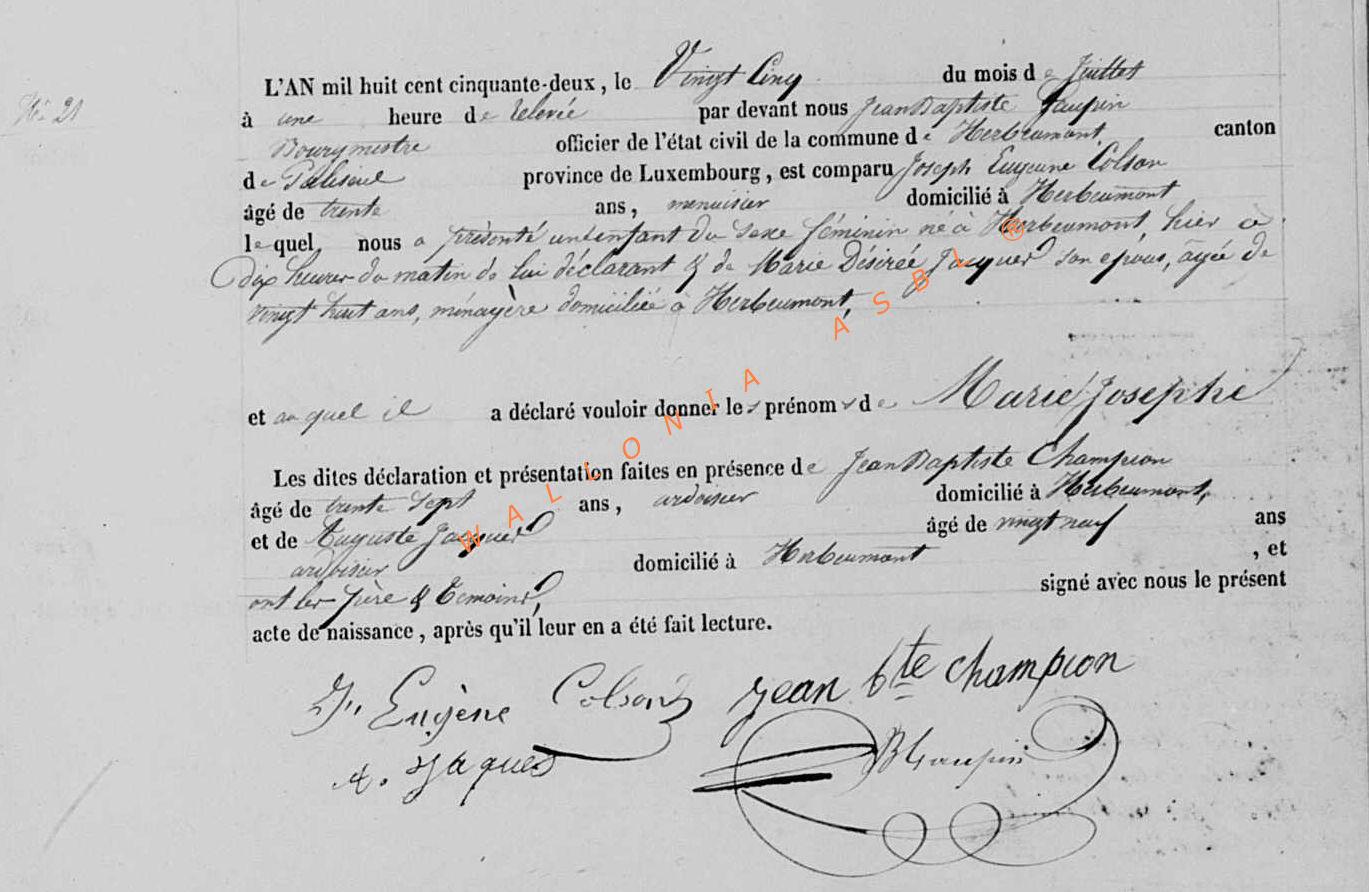 N° 21
L'AN mil huit cent cinquante-deux, le Vingt Cinq du mois de Juillet
à une heure de relevée par devant nous Jean Baptiste Gaupin
Bourgmestre officier de l'état civil de la commune de Herbeumont, canton
de Paliseul province de Luxembourg, est comparu Joseph Eugene Colson
âgé de trente ans, menuisier domicilié à Herbeumont
le quel, nous a présenté un enfant du sexe féminin né à Herbeumont, hier à
dix heures du matin de lui déclarant & de Marie Désirée Jaques son épouse, âgée de
vingt huit ans, ménagère domiciliée à Herbeumont,
et auquel il a déclaré vouloir donner les prénoms de Marie Josephe
Les dites déclaration et présentation faites en présence de Jean Baptiste Champion
âgé de trente sept ans, ardoisier domicilié à Herbeumont,
et de Auguste Jaques âgé de vingt neuf ans
ardoisier domicilié à Herbeumont, et
ont les père & témoins, signé avec nous le présent
acte de naissance, après qu'il leur en a été fait lecture.
J. Eugène Colson Jean bte champion
A. Jaques JB Gaupin
WALLONIA ASBL ®